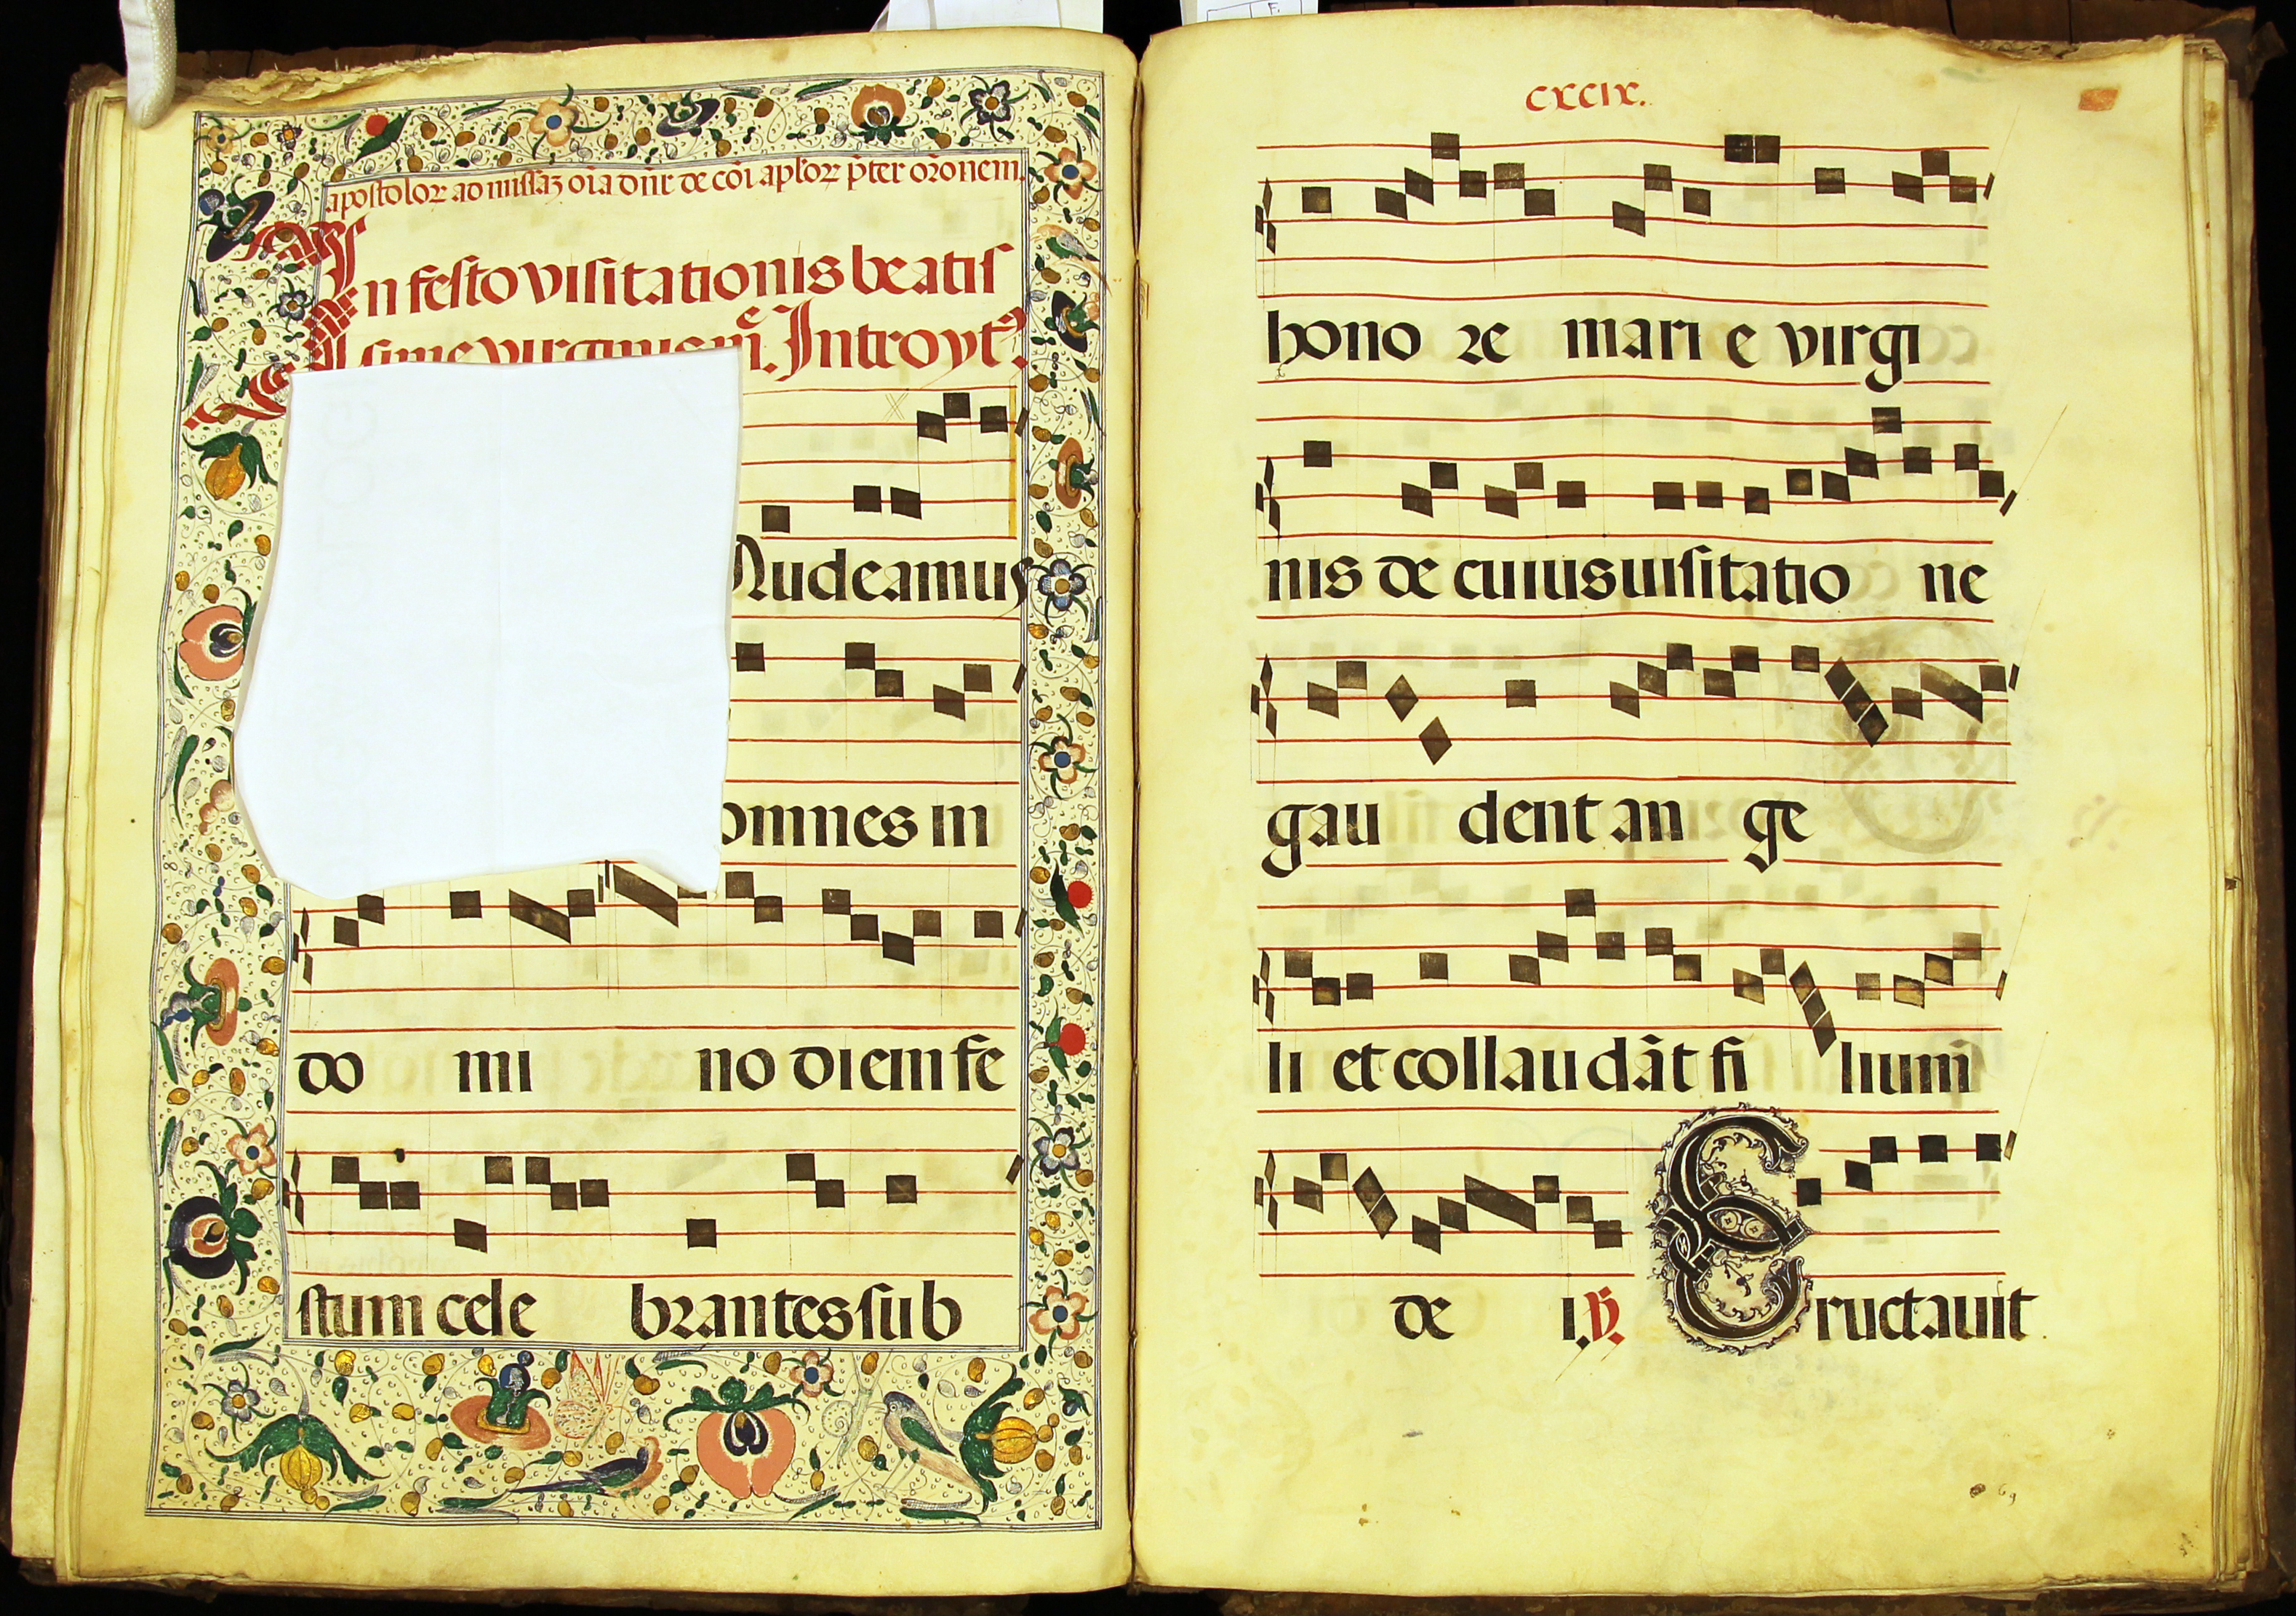 apostoloꝝ ad missaꝫ oı̃a dñr de cõi aploꝝ p̃ter oꝛõnem.
In festo visitationis beatis
sime virginis m̃e. Introytꝰ.
audeamus
omnes in
do mi no diem fe
stum cele bꝛantes sub
cxcix.
hono ꝛe mari e virgi
nis de cuius uisitatio ne
gau dent an ge
li et collaudãt fi lium̃
de i. ℣. Eructauit